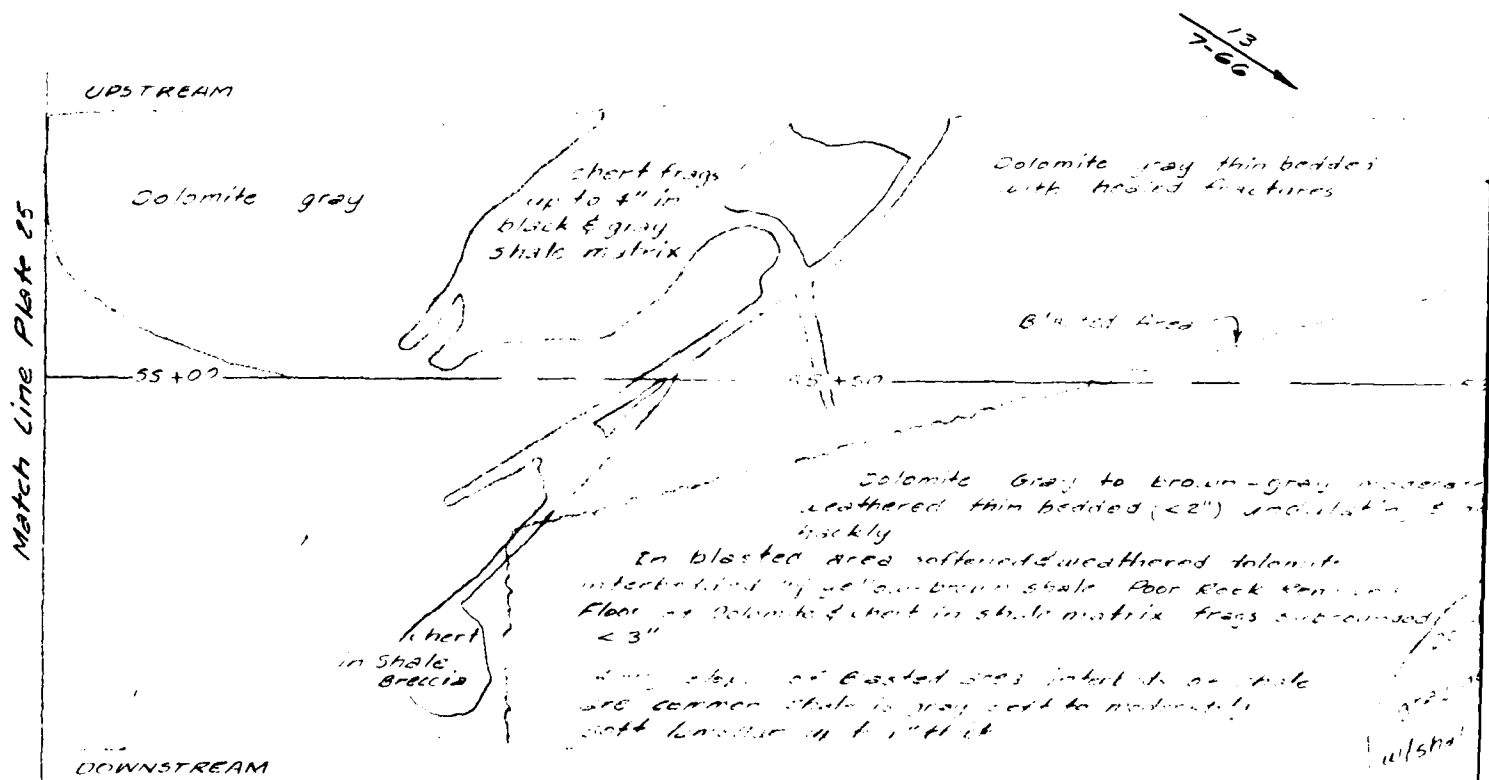 13
7-66
UPSTREAM
Match Line Plate 25
Dolomite gray
chert frags
up to 4" in
black & gray
shale matrix
Dolomite gray thin bedded
with healed fractures
Blasted Area
55+00
55+50
Dolomite Gray to brown-gray
weathered thin bedded (<2") undulating &
hackly
In blasted area softened & weathered dolomite
interbedded w/ yellow-brown shale Poor Rock
Floor of Dolomite & chert in shale matrix frags subrounded
<3"
chert
in shale
Breccia
of Blasted area interbeds of shale
are common shale is gray soft to moderately
soft up to 1" thick
w/shal
DOWNSTREAM